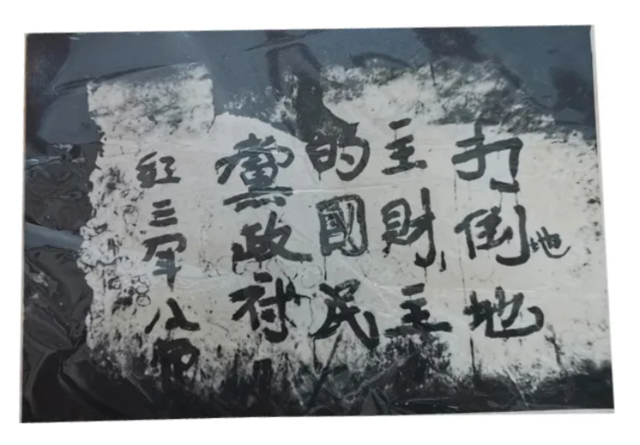 打倒地
地
主財主
的國民
黨政府
紅三军八师